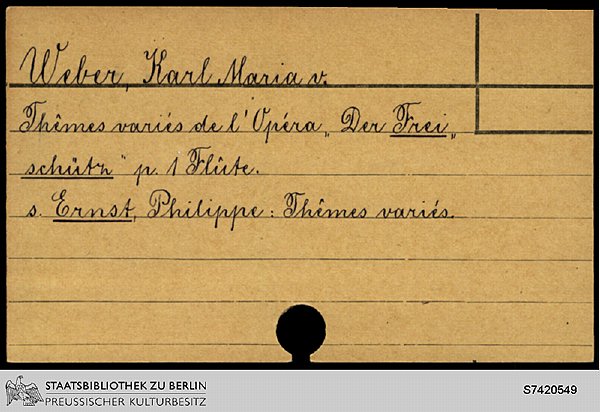 Weber, Karl Maria v.
Thêmes variés de l'Opéra „Der Frei„
schütz" p. 1 Flûte.
s. Ernst, Philippe: Thêmes variés.
STAATSBIBLIOTHEK ZU BERLIN
PREUSSISCHER KULTURBESITZ
S7420549